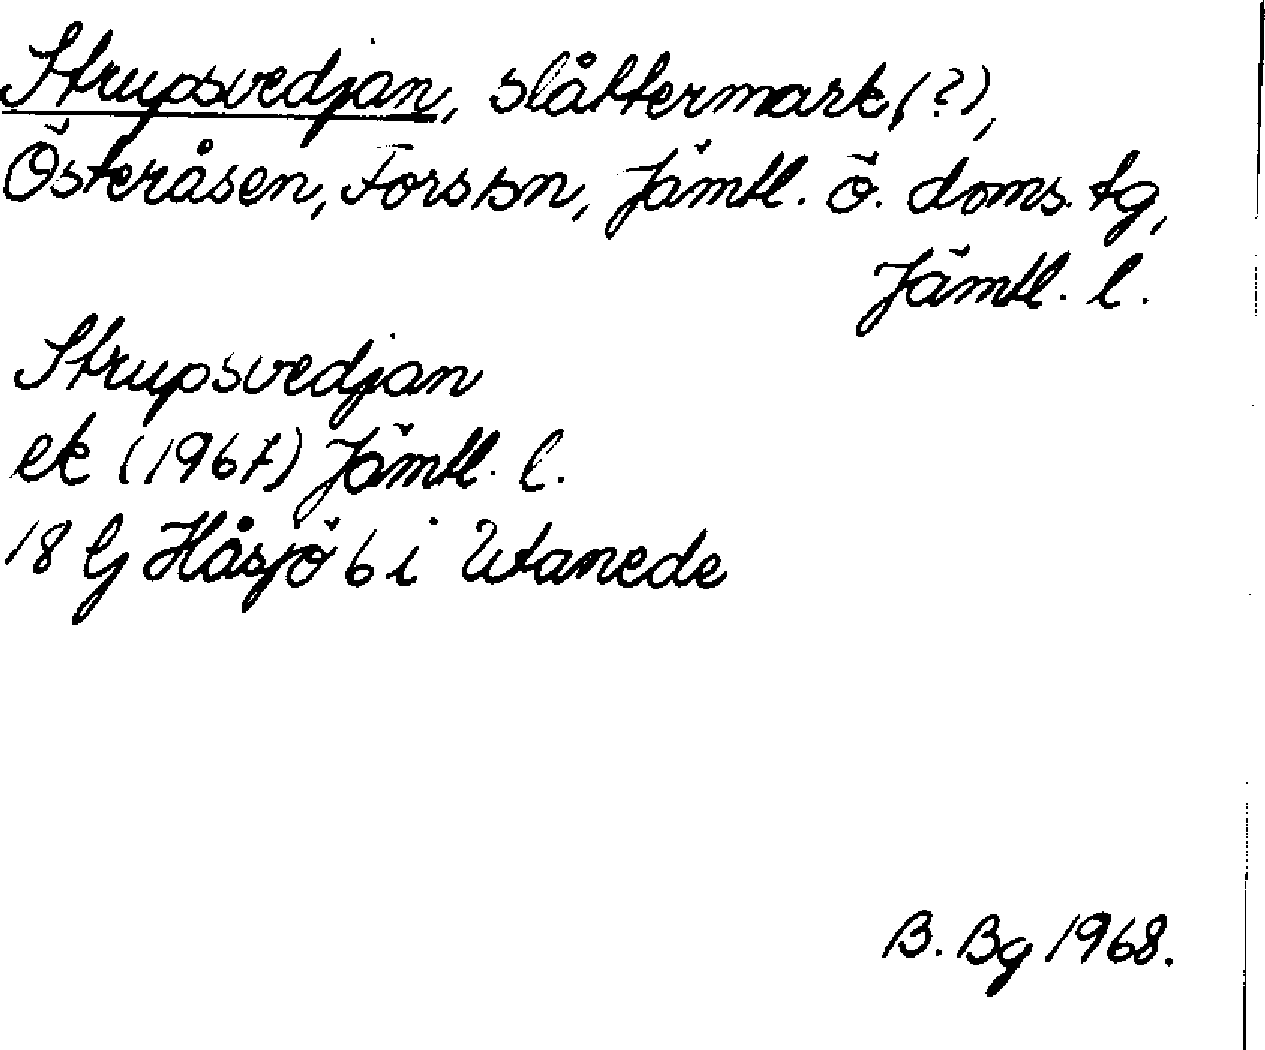 Strupsvedjan, slåttermark (?),
Österåsen, Fors sn, Jämtl. ö. doms. tg,
Jämtl. l.
Strupsvedjan
ek (1967) Jämtl. l.
18 G Håsjö 6 i Utanede
B. Bg 1968.